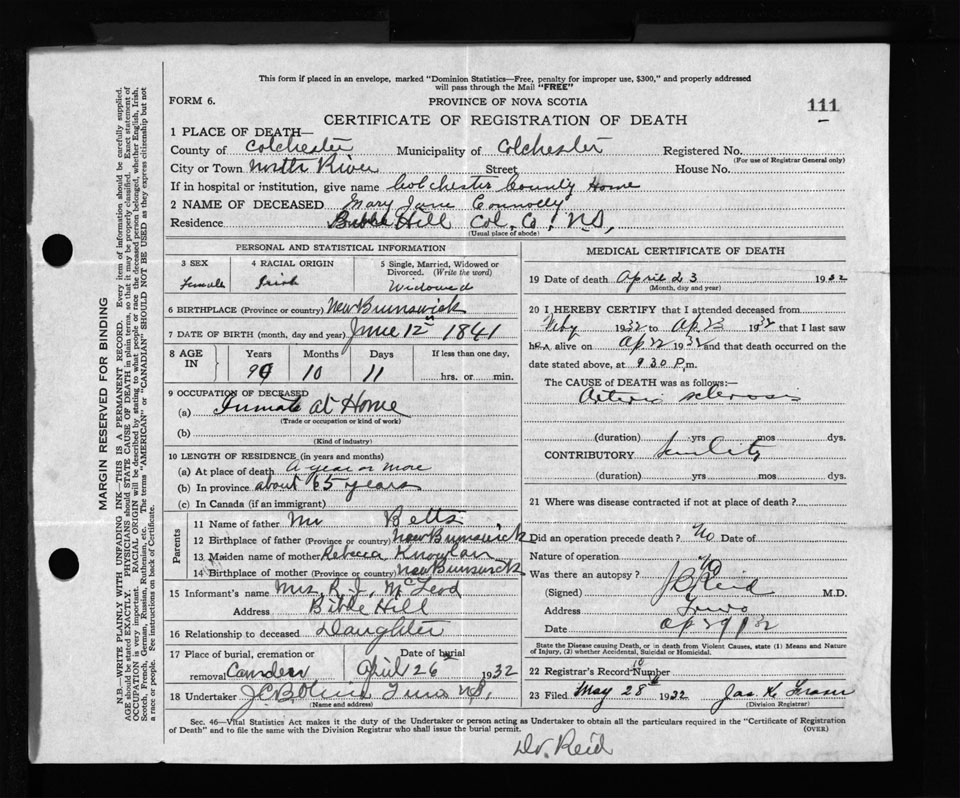 This form if placed in an envelope, marked "Dominion Statistics—Free, penalty for improper use, $300," and properly addressed
will pass through the Mail "FREE"
FORM 6. PROVINCE OF NOVA SCOTIA 111
CERTIFICATE OF REGISTRATION OF DEATH
1 PLACE OF DEATH—
County of Colchester Municipality of Colchester Registered No.
(For use of Registrar General only)
City or Town North River Street House No.
If in hospital or institution, give name Colchester County Home
2 NAME OF DECEASED Mary Jane Connolly
Residence Bible Hill Col. Co. N.S.
(Usual place of abode)
PERSONAL AND STATISTICAL INFORMATION
3 SEX 4 RACIAL ORIGIN 5 Single, Married, Widowed or
Divorced. (Write the word)
Female Irish Widowed
6 BIRTHPLACE (Province or country) New Brunswick
7 DATE OF BIRTH (month, day and year) June 12 1841
8 AGE IN Years Months Days If less than one day,
90 10 11 hrs. or min.
9 OCCUPATION OF DECEASED
(a) Inmate at Home
(Trade or occupation or kind of work)
(b)
(Kind of industry)
10 LENGTH OF RESIDENCE (in years and months)
(a) At place of death A year or more
(b) In province about 65 years
(c) In Canada (if an immigrant)
Parents
11 Name of father Mr Betts
12 Birthplace of father (Province or country) New Brunswick
13 Maiden name of mother Rebecca Knowlan
14 Birthplace of mother (Province or country) New Brunswick
15 Informant's name Mrs. R. J. McLeod
Address Bible Hill
16 Relationship to deceased Daughter
17 Place of burial, cremation or Date of burial
removal Camden April 26 1932
18 Undertaker Truro N.S.
(Name and address)
MEDICAL CERTIFICATE OF DEATH
19 Date of death April 23 1932
(Month, day and year)
20 I HEREBY CERTIFY that I attended deceased from
1932 to Ap 23 1932 that I last saw
her alive on Ap 22 1932 and that death occurred on the
date stated above, at 9 30 P.m.
The CAUSE OF DEATH was as follows:—
Arterio sclerosis
(duration) yrs mos dys.
CONTRIBUTORY Senility
(duration) yrs. mos. dys.
21 Where was disease contracted if not at place of death?
Did an operation precede death? No Date of
Nature of operation
Was there an autopsy? No
(Signed) Reid M.D.
Address Truro
Date Ap 29
State the Disease causing Death, or in death from Violent Causes, state (1) Means and Nature
of Injury, (2) whether Accidental, Suicidal or Homicidal.
22 Registrar's Record Number 10
23 Filed May 28 1932 Jas. K. Fraser
(Division Registrar)
Sec. 46—Vital Statistics Act makes it the duty of the Undertaker or person acting as Undertaker to obtain all the particulars required in the "Certificate of Registration
of Death" and to file the same with the Division Registrar who shall issue the burial permit. (OVER)
Dr. Reid
MARGIN RESERVED FOR BINDING
N.B.—WRITE PLAINLY WITH UNFADING INK—THIS IS A PERMANENT RECORD. Every item of information should be carefully supplied.
AGE should be stated EXACTLY. PHYSICIANS should STATE CAUSE OF DEATH in plain terms, so that it may be properly classified. Exact statement of
OCCUPATION is very important. RACIAL ORIGIN will be described by stating to what people or race the deceased person belonged, whether English, Irish,
Scotch, French, German, Russian, Ruthenian, etc. The terms "AMERICAN" or "CANADIAN" SHOULD NOT BE USED as they express citizenship but not
a race or people. See instructions on back of Certificate.